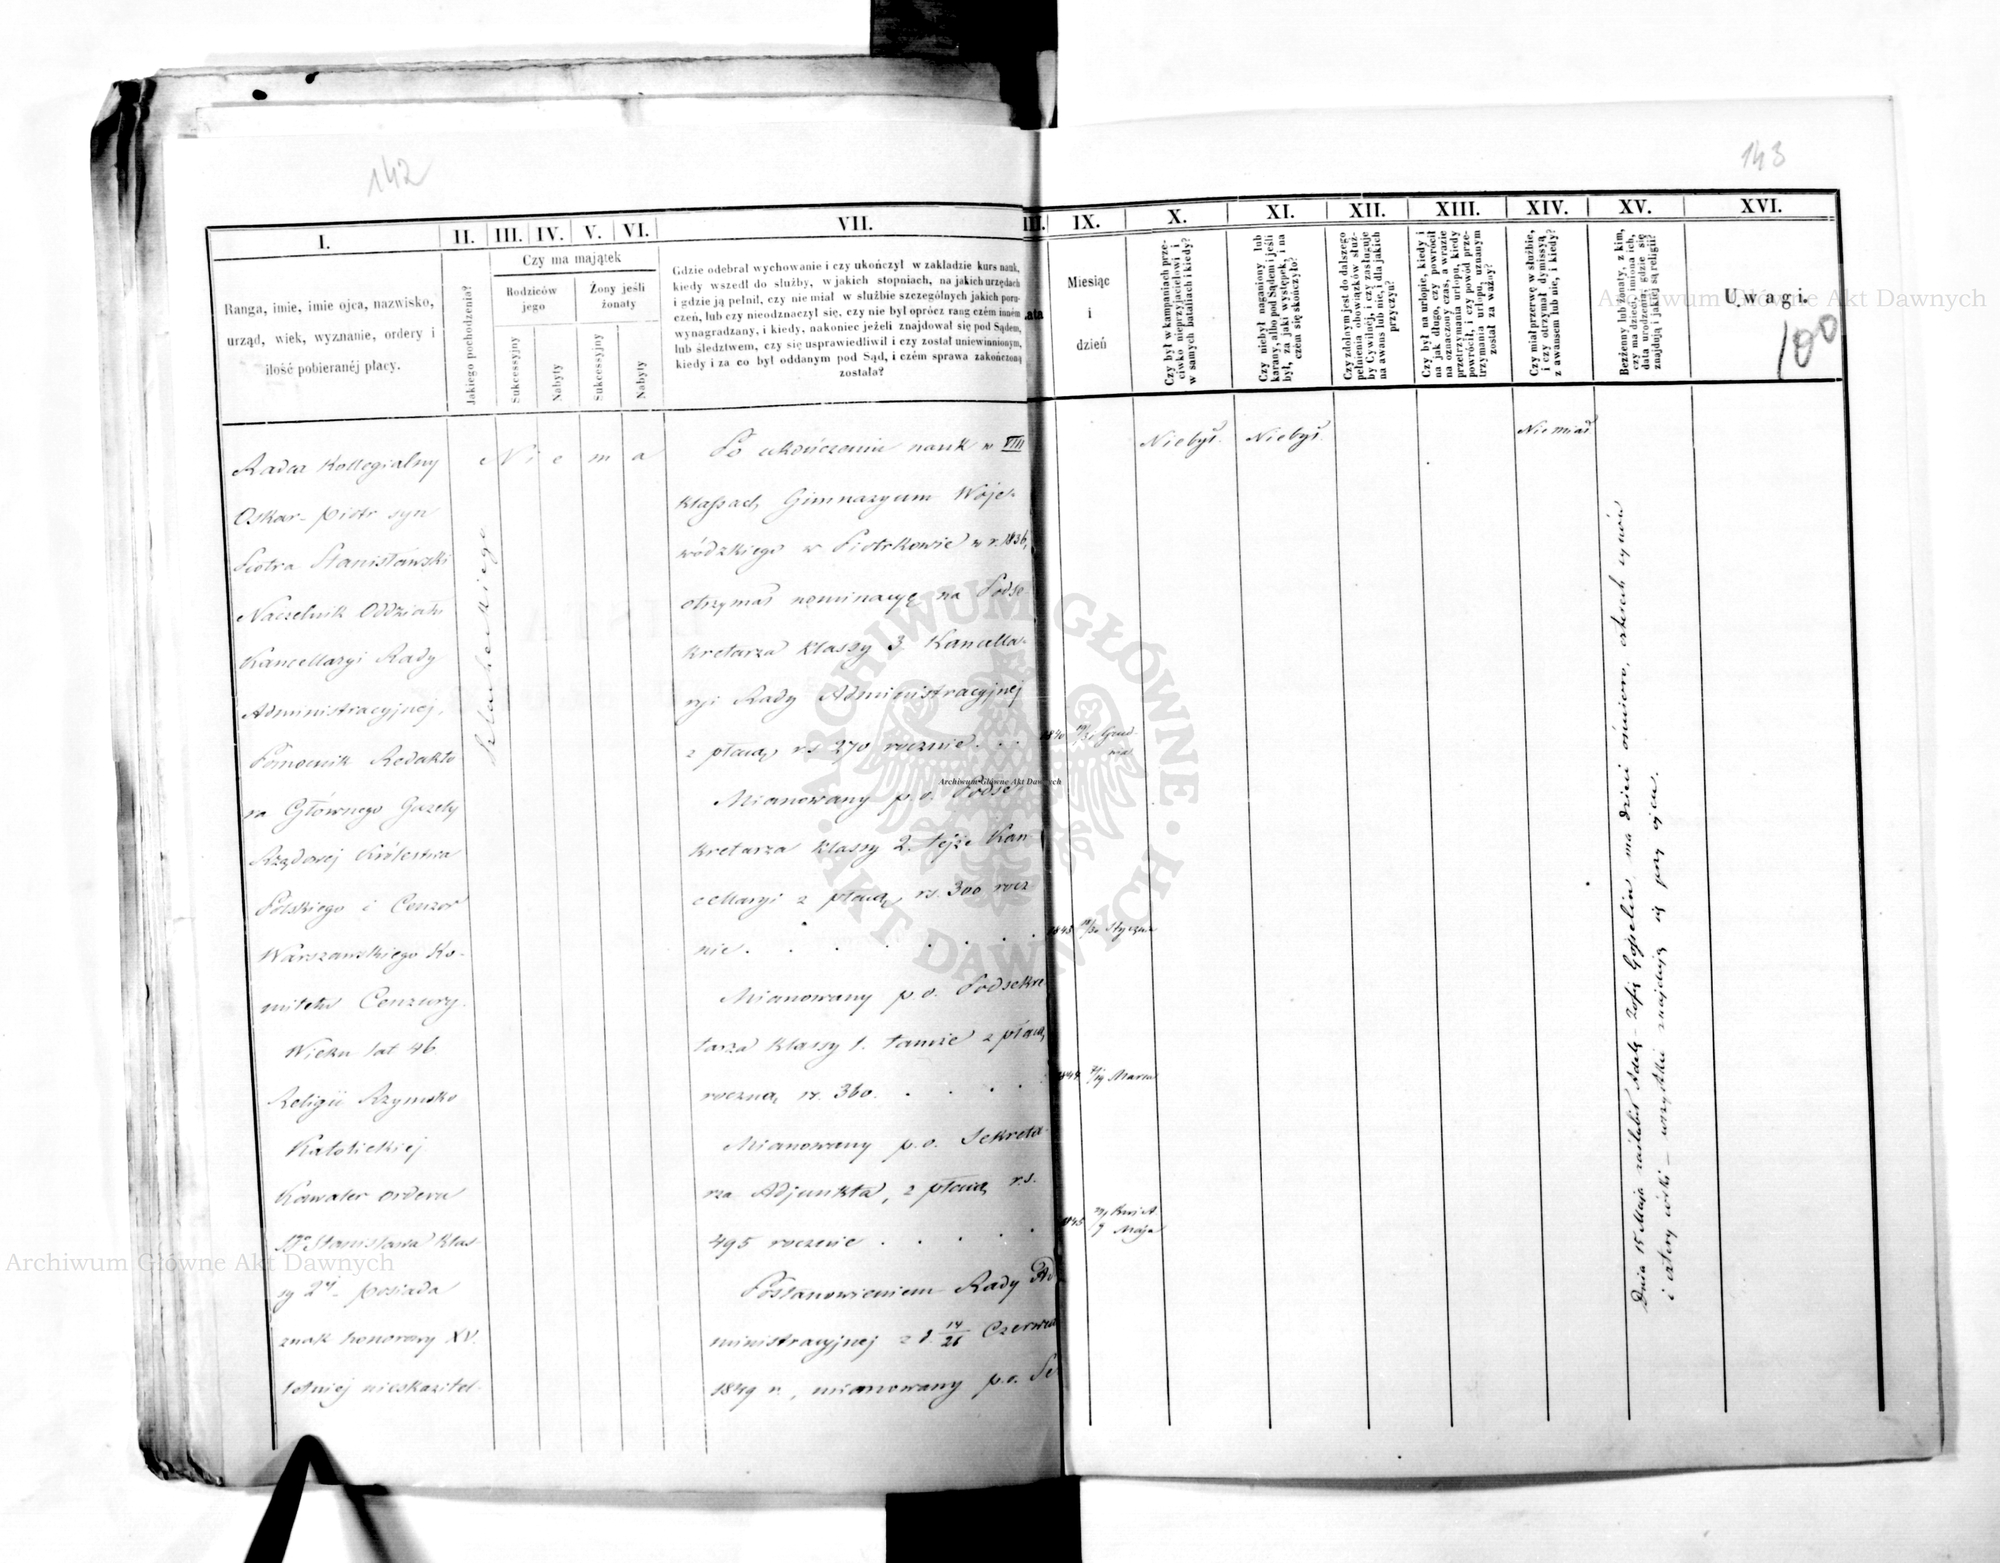 142
143
I.
II.
III.
IV.
V.
VI.
VII.
IX.
X.
XI.
XII.
XIII.
XIV.
XV.
XVI.
Ranga, imie, imie ojca, nazwisko,
urząd, wiek, wyznanie, ordery i
ilość pobieranéj płacy.
Jakiego pochodzenia?
Czy ma majątek
Rodziców
jego
Żony jeśli
żonaty
Sukcessyjny
Nabyty
Sukcessyjny
Nabyty
Gdzie odebrał wychowanie i czy ukończył w zakładzie kurs nauk,
kiedy wszedł do służby, w jakich stopniach, na jakich urzędach
i gdzie ją pełnił, czy nie miał w służbie szczególnych jakich poru-
czeń, lub czy nieodznaczył się, czy nie był oprócz rang czém inném
wynagradzany, i kiedy, nakoniec jeżeli znajdował się pod Sądem,
lub śledztwem, czy się usprawiedliwił i czy został uniewinnionym,
kiedy i za co był oddanym pod Sąd, i czém sprawa zakończoną
została?
Miesiąc
i
dzień
Czy był w kampaniach prze-
ciwko nieprzyjacielowi i
w samych bataliach i kiedy?
Czy niebył naganiony lub
karany, albo pod Sądem i jeśli
był, za jaki występek, i na
czem się skończyło?
Czy zdolnym jest do dalszego
pełnienia obowiązków służ-
by Cywilnej, i czy zasługuje
na awans lub nie, i dla jakich
przyczyn?
Czy był na urlopie, kiedy i
na jak długo, czy powrócił
na oznaczony czas, a w razie
przetrzymania urlopu, kiedy
powrócił, i czy powód prze-
trzymania urlopu, uznanym
został za ważny?
Czy miał przerwę w służbie,
i czy otrzymał dymissyą
z awansem lub nie, i kiedy?
Bezżenny lub żonaty, z kim,
czy ma dzieci, imiona ich,
data urodzenia, gdzie się
znajdują i jakiéj są religii?
Uwagi.
100
Radca Kollegialny
Oskar-Piotr syn
Piotra Stanisławski
Naczelnik Oddziału
Kancellaryi Rady
Administracyjnej,
Pomocnik Redakto
ra Głównego Gazety
Rządowej Królestwa
Polskiego i Cenzor
Warszawskiego Ko-
mitetu Cenzury.
Wieku lat 46
Religii Rzymsko
Katolickiej
Kawaler orderu
Sgo Stanisława klas-
sy 2ej - posiada
znak honorowy XV.
letniej nieskazitel-
Szlacheckiego
Nie ma
Po ukończeniu nauk w VIII
klassach Gimnazyum Woje-
wódzkiego w Piotrkowie w r. 1836,
otrzymał nominacyę na Podse-
kretarza klassy 3. Kancella-
ryi Rady Administracyjnej
z płacą rs 270 rocznie . . .
Mianowany p.o. Podse-
kretarza klassy 2. tejże Kan
cellaryi z płacą rs. 300 rocz
nie . . . . . . .
Mianowany p.o. Podsekre
tarza klassy 1. tamże z płacą
roczną rs. 360. . . . .
Mianowany p.o. Sekreta-
rza Adjunkta, z płacą rs.
495 rocznie . . . . .
Postanowieniem Rady Ad
ministracyjnej z d. 14/26 Czerwca
1849 r., mianowany p.o. Se
1840 Grud-
nia
1843 Stycznia
Marca
1845 Kwiet
Maja
Niebył.
Niebył.
Niemiał
Dnia 15 Maja zaślubił Adelę-Zofię ma dzieci ośmioro, czterech synów
i cztery córki - wszystkie znajdują się przy ojcu.
Archiwum Główne Akt Dawnych
Archiwum Główne Akt Dawnych
Archiwum Główne Akt Dawnych
ARCHIWUM GŁÓWNE AKT DAWNYCH